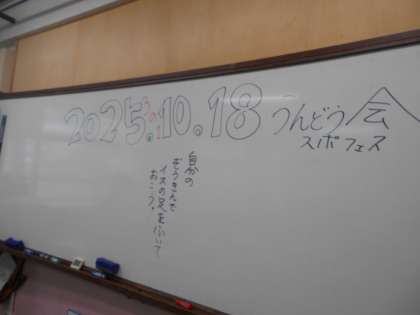 2025.10.18 うんどう会
スポフェス
自分の
ぞうきんで
イスの足をふいて
おこう。